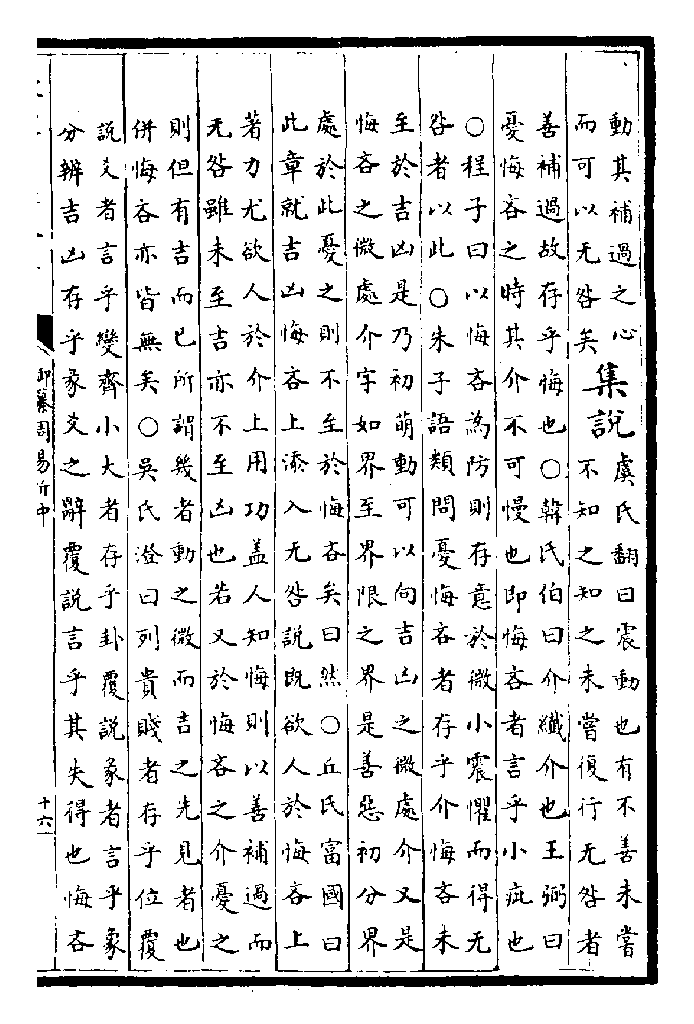 動其補過之心
而可以无咎矣
集說
虞氏翻曰震動也有不善未嘗
不知之知之未嘗復行无咎者
善補過故存乎悔也○韓氏伯曰介纖介也王弼曰
憂悔吝之時其介不可慢也即悔吝者言乎小疵也
○程子曰以悔吝為防則存意於微小震懼而得无
咎者以此○朱子語類問憂悔吝者存乎介悔吝未
至於吉凶是乃初萌動可以向吉凶之微處介又是
悔吝之微處介字如界至界限之界是善惡初分界
處於此憂之則不至於悔吝矣曰然○丘氏富國曰
此章就吉凶悔吝上添入无咎說既欲人於悔吝上
著力尤欲人於介上用功蓋人知悔則以善補過而
无咎雖未至吉亦不至凶也若又於悔吝之介憂之
則但有吉而已所謂幾者動之微而吉之先見者也
併悔吝亦皆無矣○吳氏澄曰列貴賤者存乎位覆
說爻者言乎變齊小大者存乎卦覆說彖者言乎象
分辨吉凶存乎彖爻之辭覆說言乎其失得也悔吝
御纂周易折中
十六